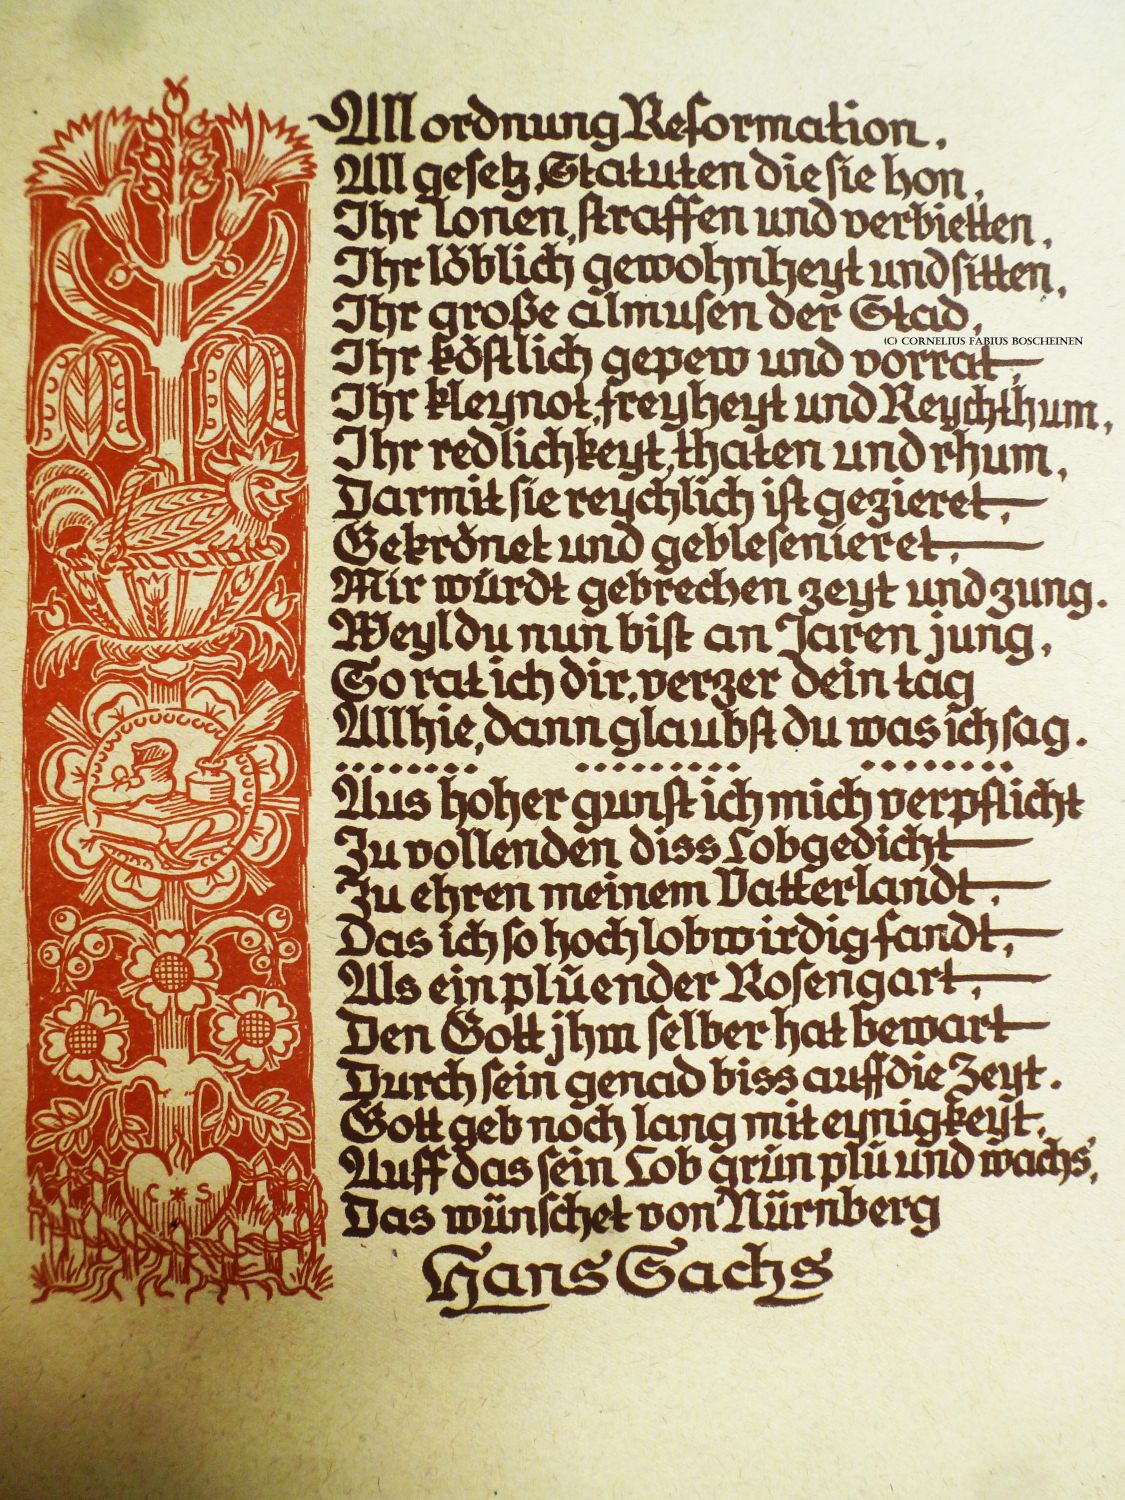 All ordnung Reformation,
All gesetz, Statuten die sie hon,
Ihr lonen, straffen und verbietten,
Ihr löblich gewohnheyt und sitten,
Ihr große almusen der Stad,
(C) CORNELIUS FABIUS BOSCHEINEN
Ihr köstlich gepew und vorrat,
Ihr kleynot, freyheyt und Reychthum,
Ihr redlichkeyt, thaten und rhum,
Darmit sie reychlich ist gezieret,
Gekrönet und geblesenieret,
Mir würdt gebrechen zeyt und zung.
Weyl du nun bist an Jaren jung,
So rat ich dir, verzer dein tag
Allhie, dann glaubst du was ich sag.
Aus hoher gunst ich mich verpflicht
Zu vollenden diss Lobgedicht
Zu ehren meinem Vatterlandt,
Das ich so hoch lobwirdig fandt,
Als ein plüender Rosengart,
Den Gott jhm selber hat bewart
Durch sein genad biss auff die Zeyt.
Gott geb noch lang mit eynigkeyt,
Auff das sein Lob grün plü und wachs,
Das wünschet von Nürnberg
Hans Sachs
C * S